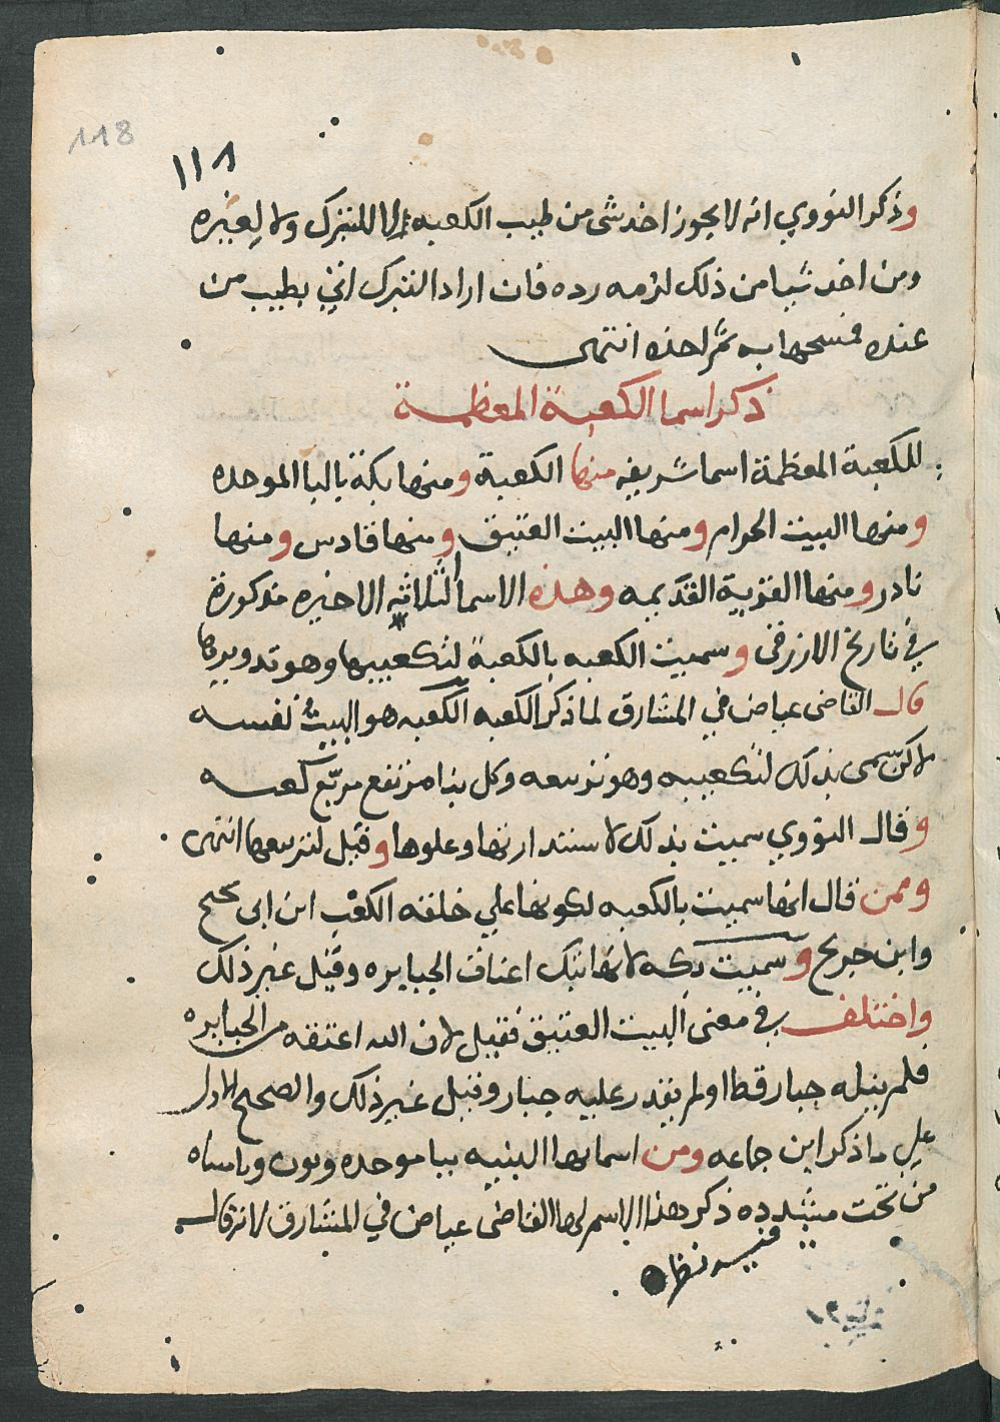 118
١١٨
وذكر النووي انه لا يجوز اخذ شى من طيب الكعبه لا للتبرك ولا لغيره
ومن اخذ شيا من ذلك لزمه رده فان اراد التبرك اتي بطيب من
عنده فمسحها به ثم اخذه انتهى
ذكر اسما الكعبة المعظمة
للكعبة المعظمة اسما شريفه منها الكعبة ومنها بكة بالبا الموحده
ومنها البيت الحرام ومنها البيت العتيق ومنها قادس ومنها
نادر ومنها القرية القديمه وهذه الاسما الثلاثه الاخيره مذكورة
في تاريخ الازرقى وسميت الكعبه بالكعبة لتكعيبها وهو تدويرها
قال القاضى عياض في المشارق لما ذكر الكعبه الكعبه هو البيت نفسه
لاكن سمى بذلك لتكعيبه وهو تربيعه وكل بنا مرتفع مربع كعبه
وقال النووي سميت بذلك لاستدارتها وعلوها وقيل لتربيعها انتهى
وممن قال انها سميت بالكعبه لكونها علي خلقه الكعب ابن ابى نجيح
وابن جريج وسميت بكه لانها تبك اعناق الجبابره وقيل غير ذلك
واختلف في معنى البيت العتيق فقيل لان الله اعتقه من الجبابره
فلم ينله جبار قط او لم يقدر عليه جبار وقيل غير ذلك والصحيح الاول
علي ما ذكر ابن جماعه ومن اسمايها البنيه ببا موحده ونون ويا مثناه
من تحت مشدده ذكر هذا الاسم لها القاضى عياض في المشارق لانه قال
فيه نظر